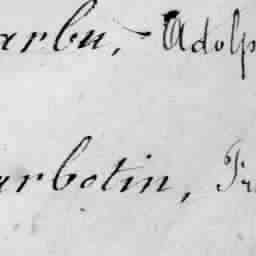 arbu, - Adolp
arbotin, Fr